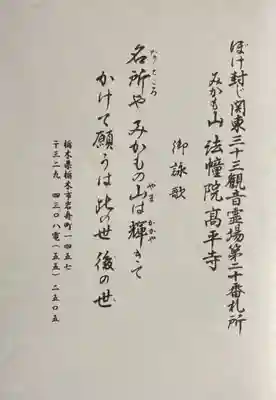 ぼけ封じ関東三十三観音霊場第二十番札所
みかも山 法幢院高平寺
御詠歌
名所や みかもの山は輝きて
かけて願うは此の世後の世
栃木県栃木市岩舟町一四五七
〒三二九ー四三〇八 電(五五)二五〇五